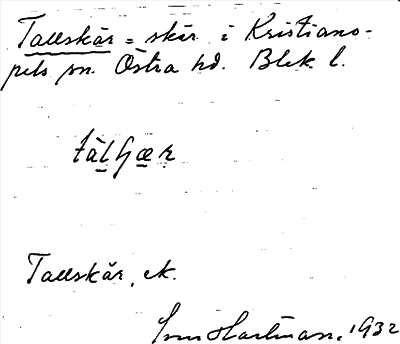 Tallskär = skär i Kristiano-
pels sn. Östra hd. Blek. l.
tàlʃær
Tallskär, ek.
Sven Hartman, 1932